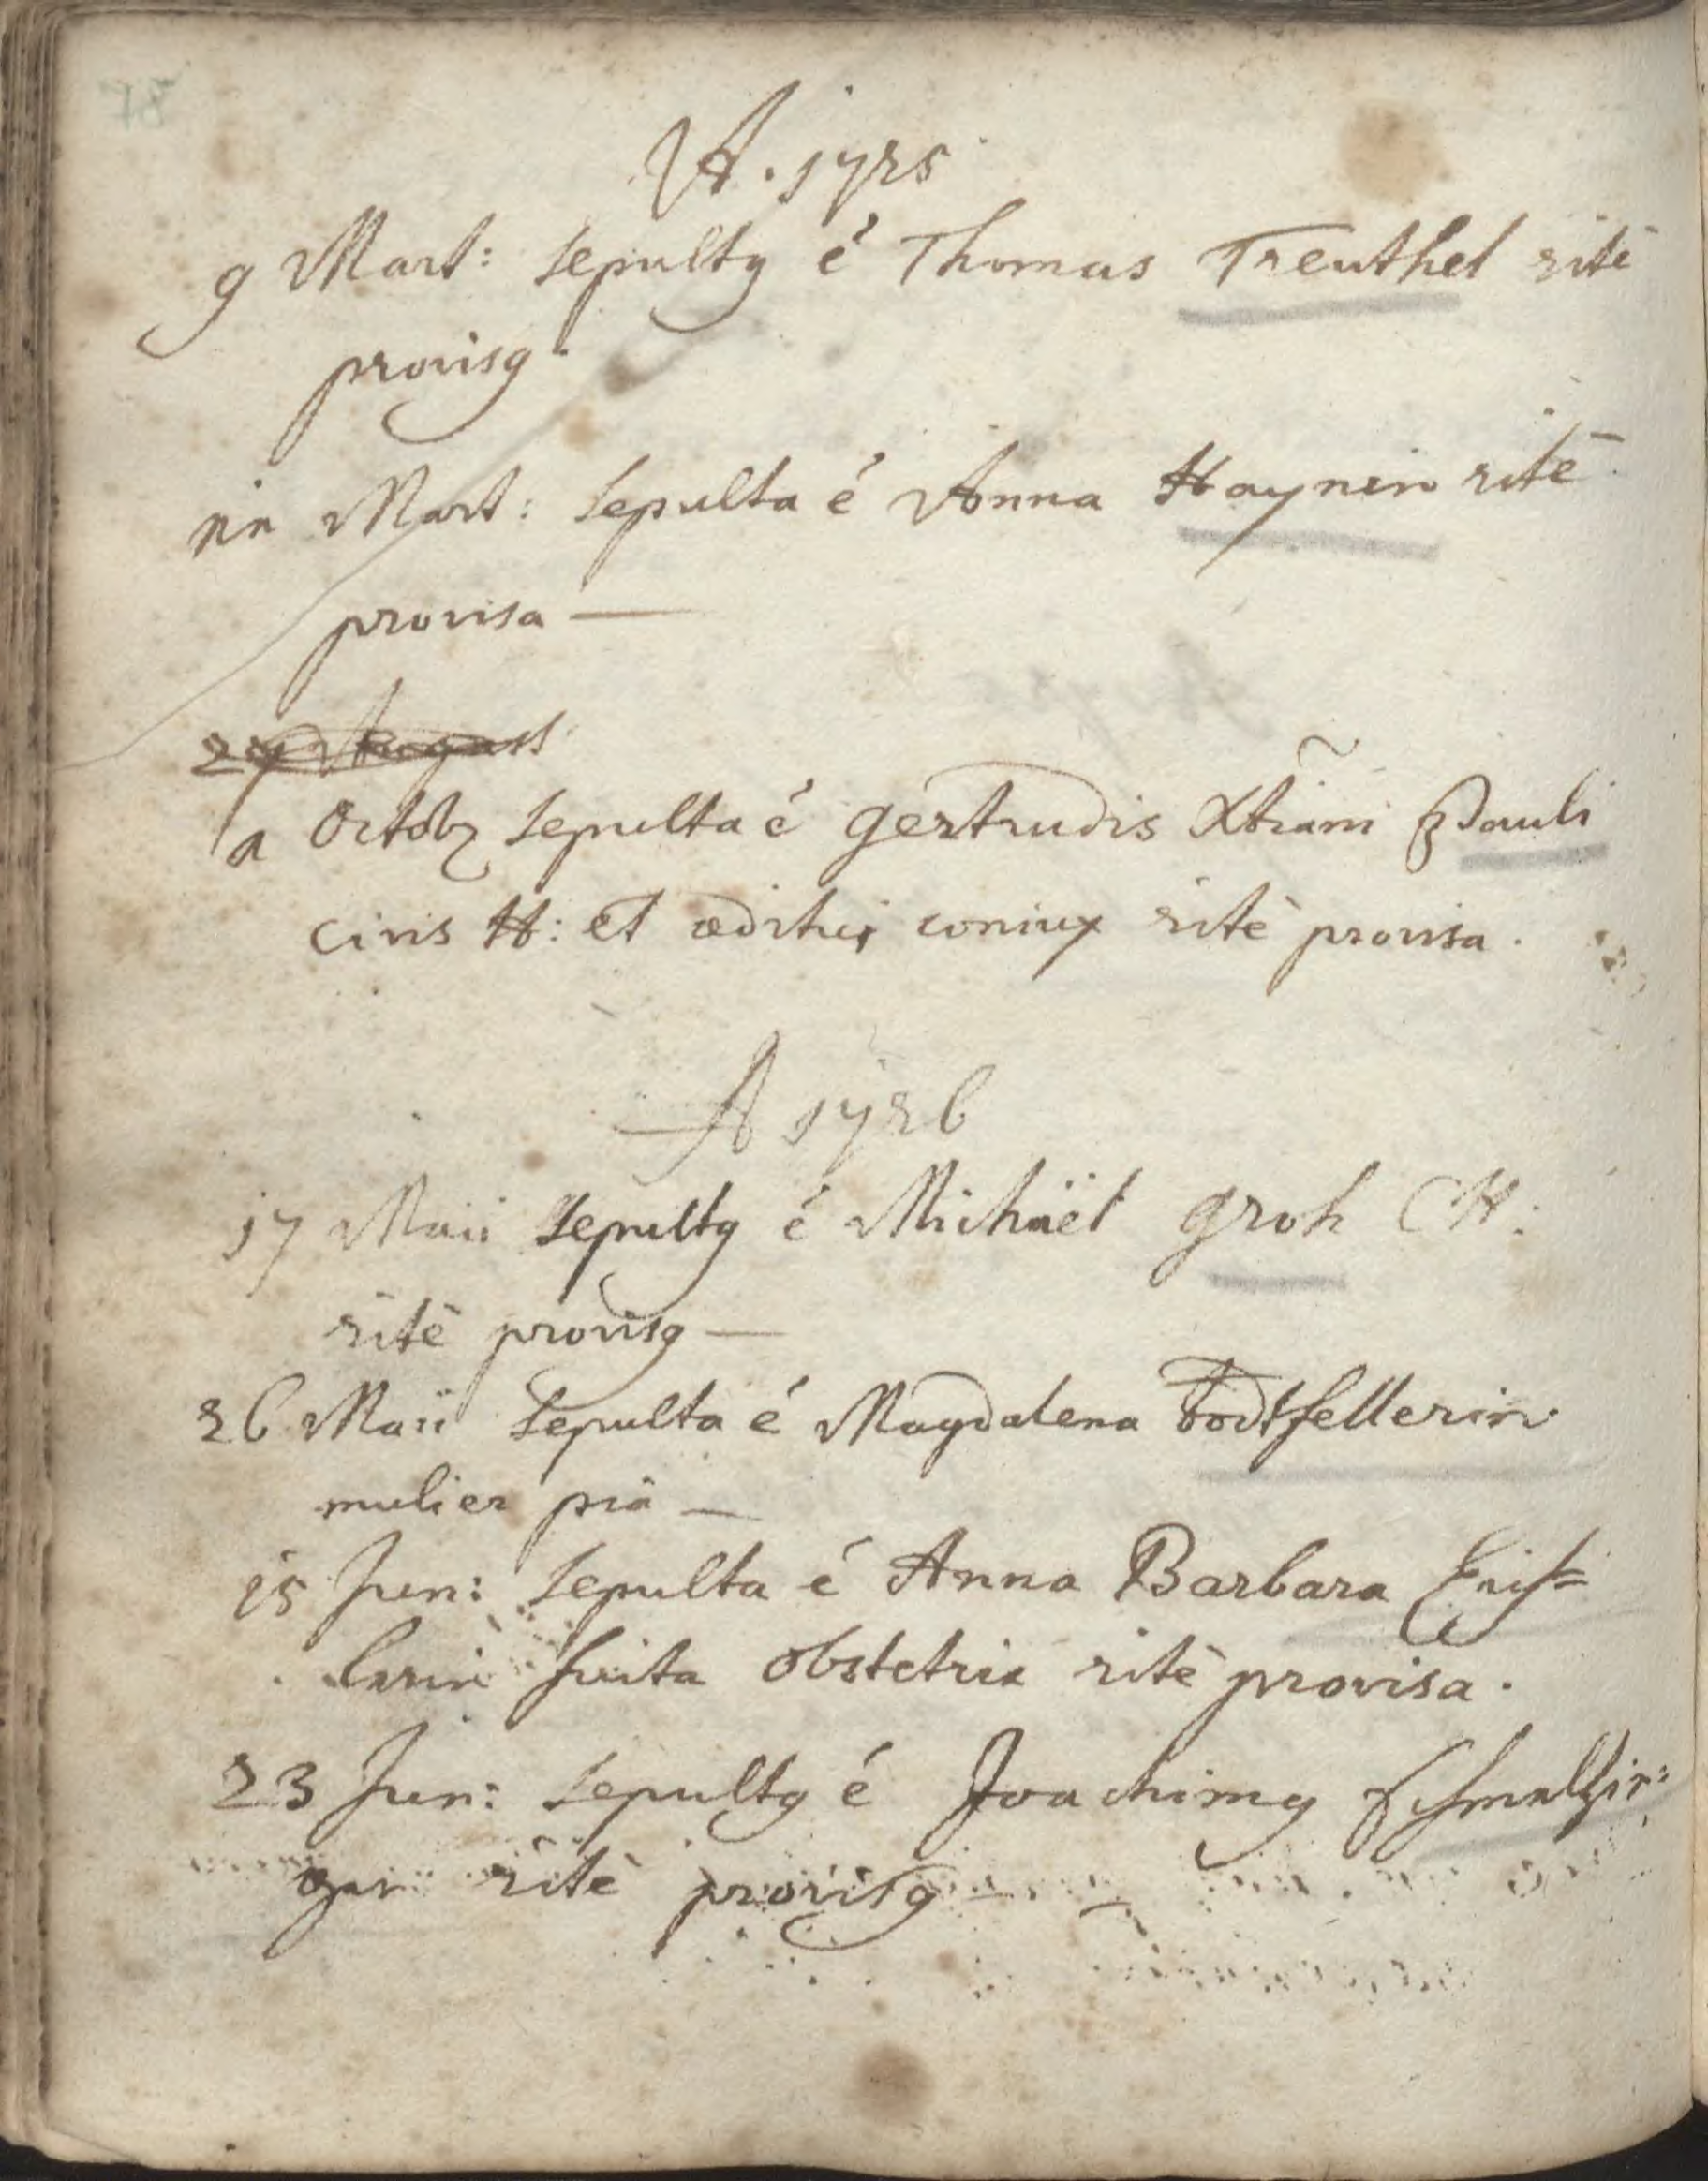 78
A. 1725
9 Mart: sepultg é Thomas Treuthel ritè
provisg.
Mart: sepulta é Anna Haynerin ritè
provisa —
27 August
Octobr sepulta é gertrudis Xtiani Pauli
civis H: et æditui coniux ritè provisa.
A 1726
17 Maii sepultg é Michaël groh CH:
ritè provisg —
26 Maii sepulta é Magdalena todtfellerin
mulier pia —
15 Jun: sepulta é Anna Barbara
obstetrix ritè provisa.
23 Jun: sepultg é Joachimg Schmaltzin:
ger ritè provisg —